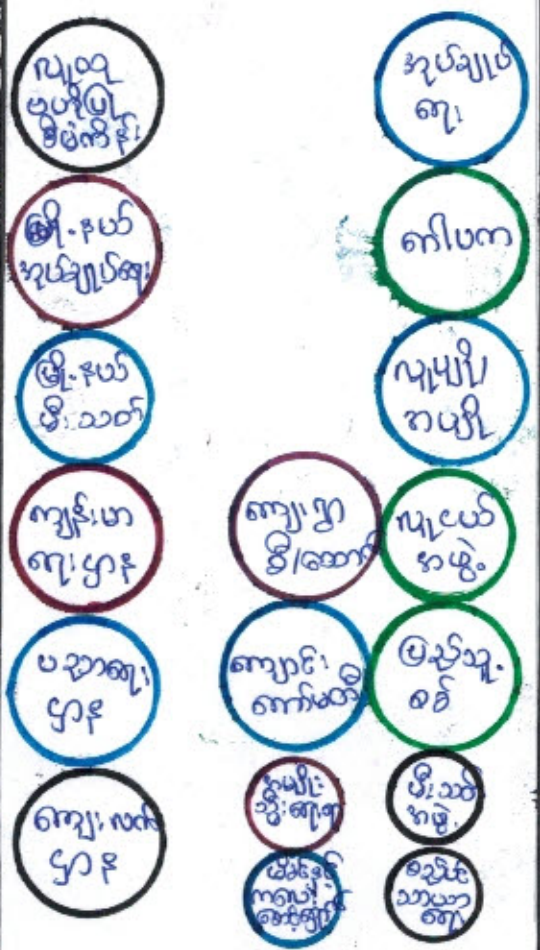 လူထု
ဗဟိုပြု
စီမံကိန်း
မြို့နယ်
အုပ်ချုပ်ရေး
မြို့နယ်
မီးသတ်
ကျန်းမာ
ရေးဌာန
ပညာရေး
ဌာန
ကျေးလက်
ဌာန
ကျေးရွာ
စီ/ထောက်
ကျောင်း
ကော်မတီ
အမျိုး
သမီးရေးရာ
မိခင်နှင့်
ကလေး
စောင့်ရှောက်
အုပ်ချုပ်
ရေး
ဒါပကာ
လူမျိုး/
အမျိုး
လူငယ်
အဖွဲ့
ပြည်သူ့
စစ်
မီးသတ်
အဖွဲ့
စည်ပင်
သာယာ
ရေး